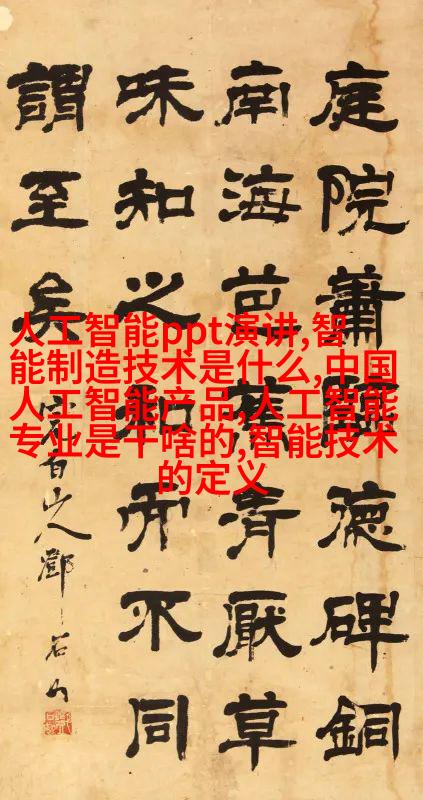 庭院蕭德碑銅
南海芭蕉清厭草
味知之和而不同
謂至矣
完白山人鄧石如
人工智能ppt演讲,智
能制造技术是什么,中国
人工智能产品,人工智能
专业是干啥的,智能技术
的定义